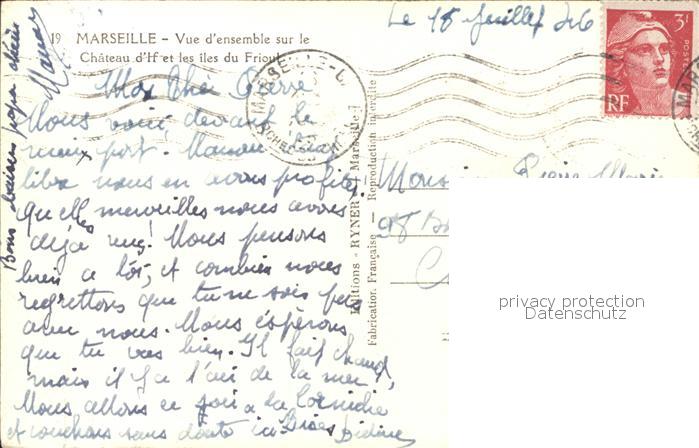 Le 18 Juillet 46
19 MARSEILLE - Vue d'ensemble sur le
Château d'If et les îles du Frioul
Mon Chéri Pierre
Nous voici devant le
vieux port. Manon
libre nous en avons profité,
quelles merveilles nous avons
déjà vues! Nous pensons
bien à toi, et combien nous
regrettons que tu ne sois pas
avec nous. Nous espérons
que tu vas bien. Il fait chaud
mais il y a l'air de la mer,
Nous allons ce soir à la Corniche
et couchons sans doute ici Bises
Bons baisers papa chéri
Manon
MARSEILLE
Editions - RYNER - Marseille
Fabrication Française - Reproduction interdite
3F
POSTES
RF
Pierre
98 B
privacy protection
Datenschutz